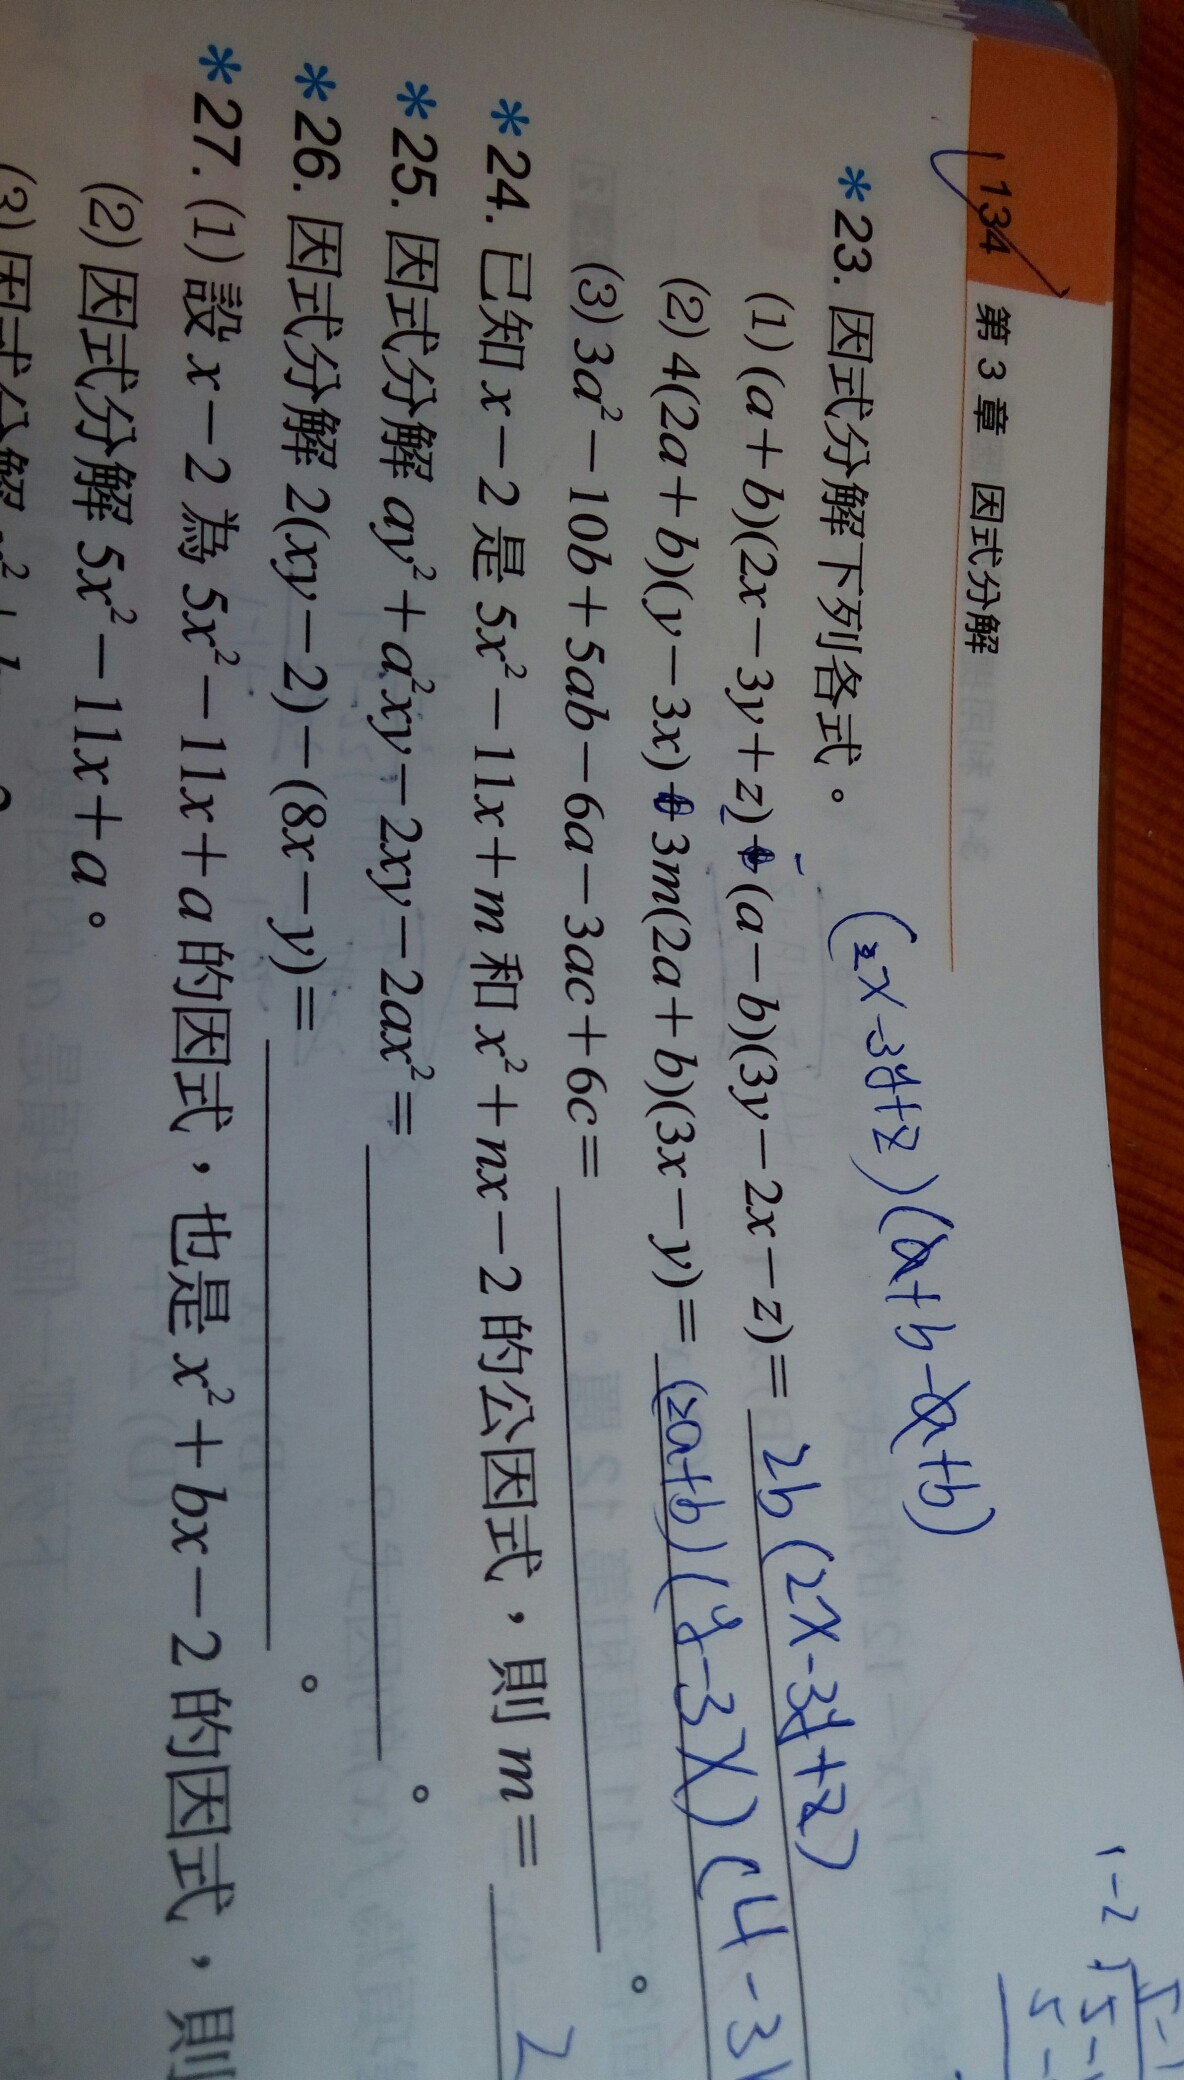 134 第 3 章 因式分解
(2x-3y+z)(a+b-a+b)
*23. 因式分解下列各式。
(1) (a+b)(2x-3y+z)+(a-b)(3y-2x-z)= 2b(2x-3y+z)
(2) 4(2a+b)(y-3x)+3m(2a+b)(3x-y)= (2a+b)(y-3x)(4-3
(3) 3a²-10b+5ab-6a-3ac+6c=。
*24. 已知 x-2 是 5x²-11x+m 和 x²+nx-2 的公因式，則 m= 2
*25. 因式分解 ay²+a²xy-2xy-2ax²=。
*26. 因式分解 2(xy-2)-(8x-y)=。
*27. (1) 設 x-2 為 5x²-11x+a 的因式，也是 x²+bx-2 的因式，則
(2) 因式分解 5x²-11x+a。
(3) 因式分解